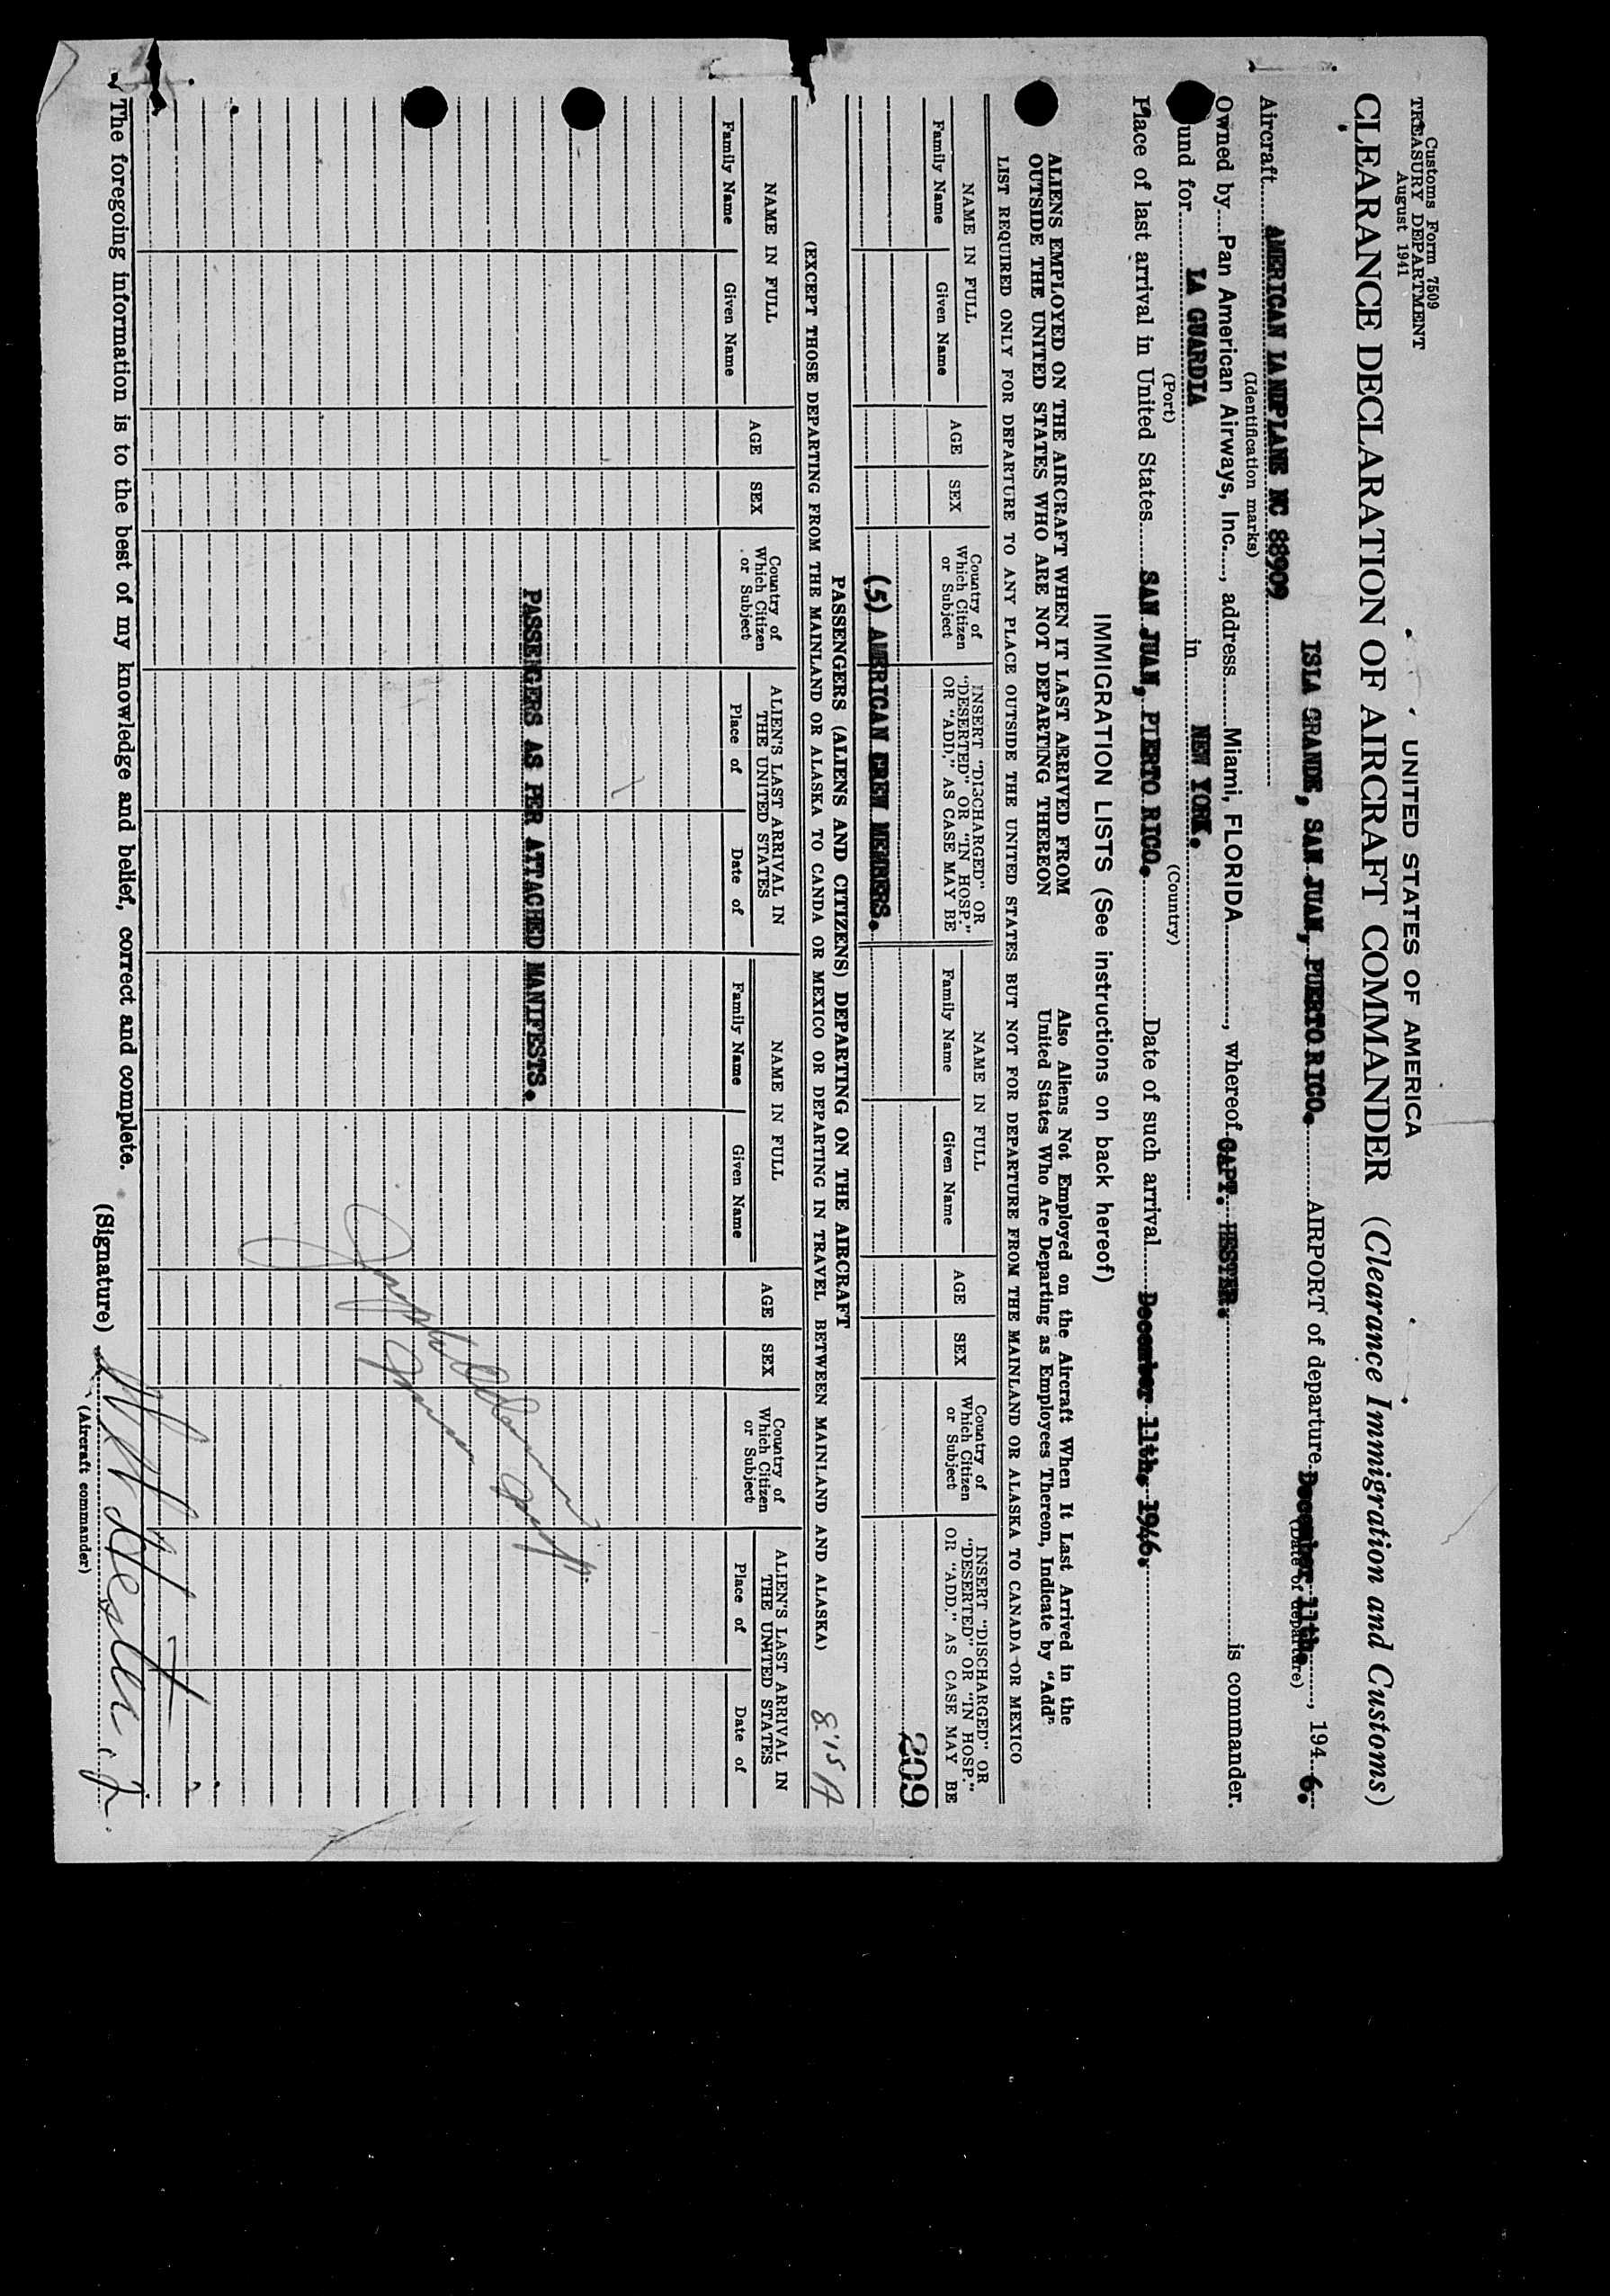 Customs Form 7509
TREASURY DEPARTMENT
August 1941
UNITED STATES OF AMERICA
CLEARANCE DECLARATION OF AIRCRAFT COMMANDER (Clearance Immigration and Customs)
ISLA GRANDE, SAN JUAN, PUERTO RICO. AIRPORT of departure December 11th, 194 6.
(Date of departure)
Aircraft AMERICAN LANDPLANE NC 88909
(Identification marks)
Owned by Pan American Airways, Inc., address Miami, FLORIDA, whereof CAPT. HESTER. is commander.
und for LA GUARDIA in NEW YORK.
(Port) (Country)
Place of last arrival in United States SAN JUAN, PIERTO RICO. Date of such arrival December 11th, 1946.
IMMIGRATION LISTS (See instructions on back hereof)
ALIENS EMPLOYED ON THE AIRCRAFT WHEN IT LAST ARRIVED FROM
OUTSIDE THE UNITED STATES WHO ARE NOT DEPARTING THEREON
Also Aliens Not Employed on the Aircraft When It Last Arrived in the
United States Who Are Departing as Employees Thereon, Indicate by "Add"
LIST REQUIRED ONLY FOR DEPARTURE TO ANY PLACE OUTSIDE THE UNITED STATES BUT NOT FOR DEPARTURE FROM THE MAINLAND OR ALASKA TO CANADA OR MEXICO
NAME IN FULL
Family Name Given Name
AGE
SEX
Country of
Which Citizen
or Subject
INSERT "DISCHARGED" OR
"DESERTED" OR "IN HOSP."
OR "ADD," AS CASE MAY BE
NAME IN FULL
Family Name Given Name
AGE
SEX
Country of
Which Citizen
or Subject
INSERT "DISCHARGED" OR
"DESERTED" OR "IN HOSP."
OR "ADD," AS CASE MAY BE
209
(5) AMERICAN CREW MEMBERS.
PASSENGERS (ALIENS AND CITIZENS) DEPARTING ON THE AIRCRAFT
(EXCEPT THOSE DEPARTING FROM THE MAINLAND OR ALASKA TO CANDA OR MEXICO OR DEPARTING IN TRAVEL BETWEEN MAINLAND AND ALASKA)
8:15 A
NAME IN FULL
Family Name Given Name
AGE
SEX
Country of
Which Citizen
or Subject
ALIEN'S LAST ARRIVAL IN
THE UNITED STATES
Place of Date of
NAME IN FULL
Family Name Given Name
AGE
SEX
Country of
Which Citizen
or Subject
ALIEN'S LAST ARRIVAL IN
THE UNITED STATES
Place of Date of
PASSENGERS AS PER ATTACHED MANIFESTS.
The foregoing information is to the best of my knowledge and belief, correct and complete.
(Signature) Hester
(Aircraft commander)